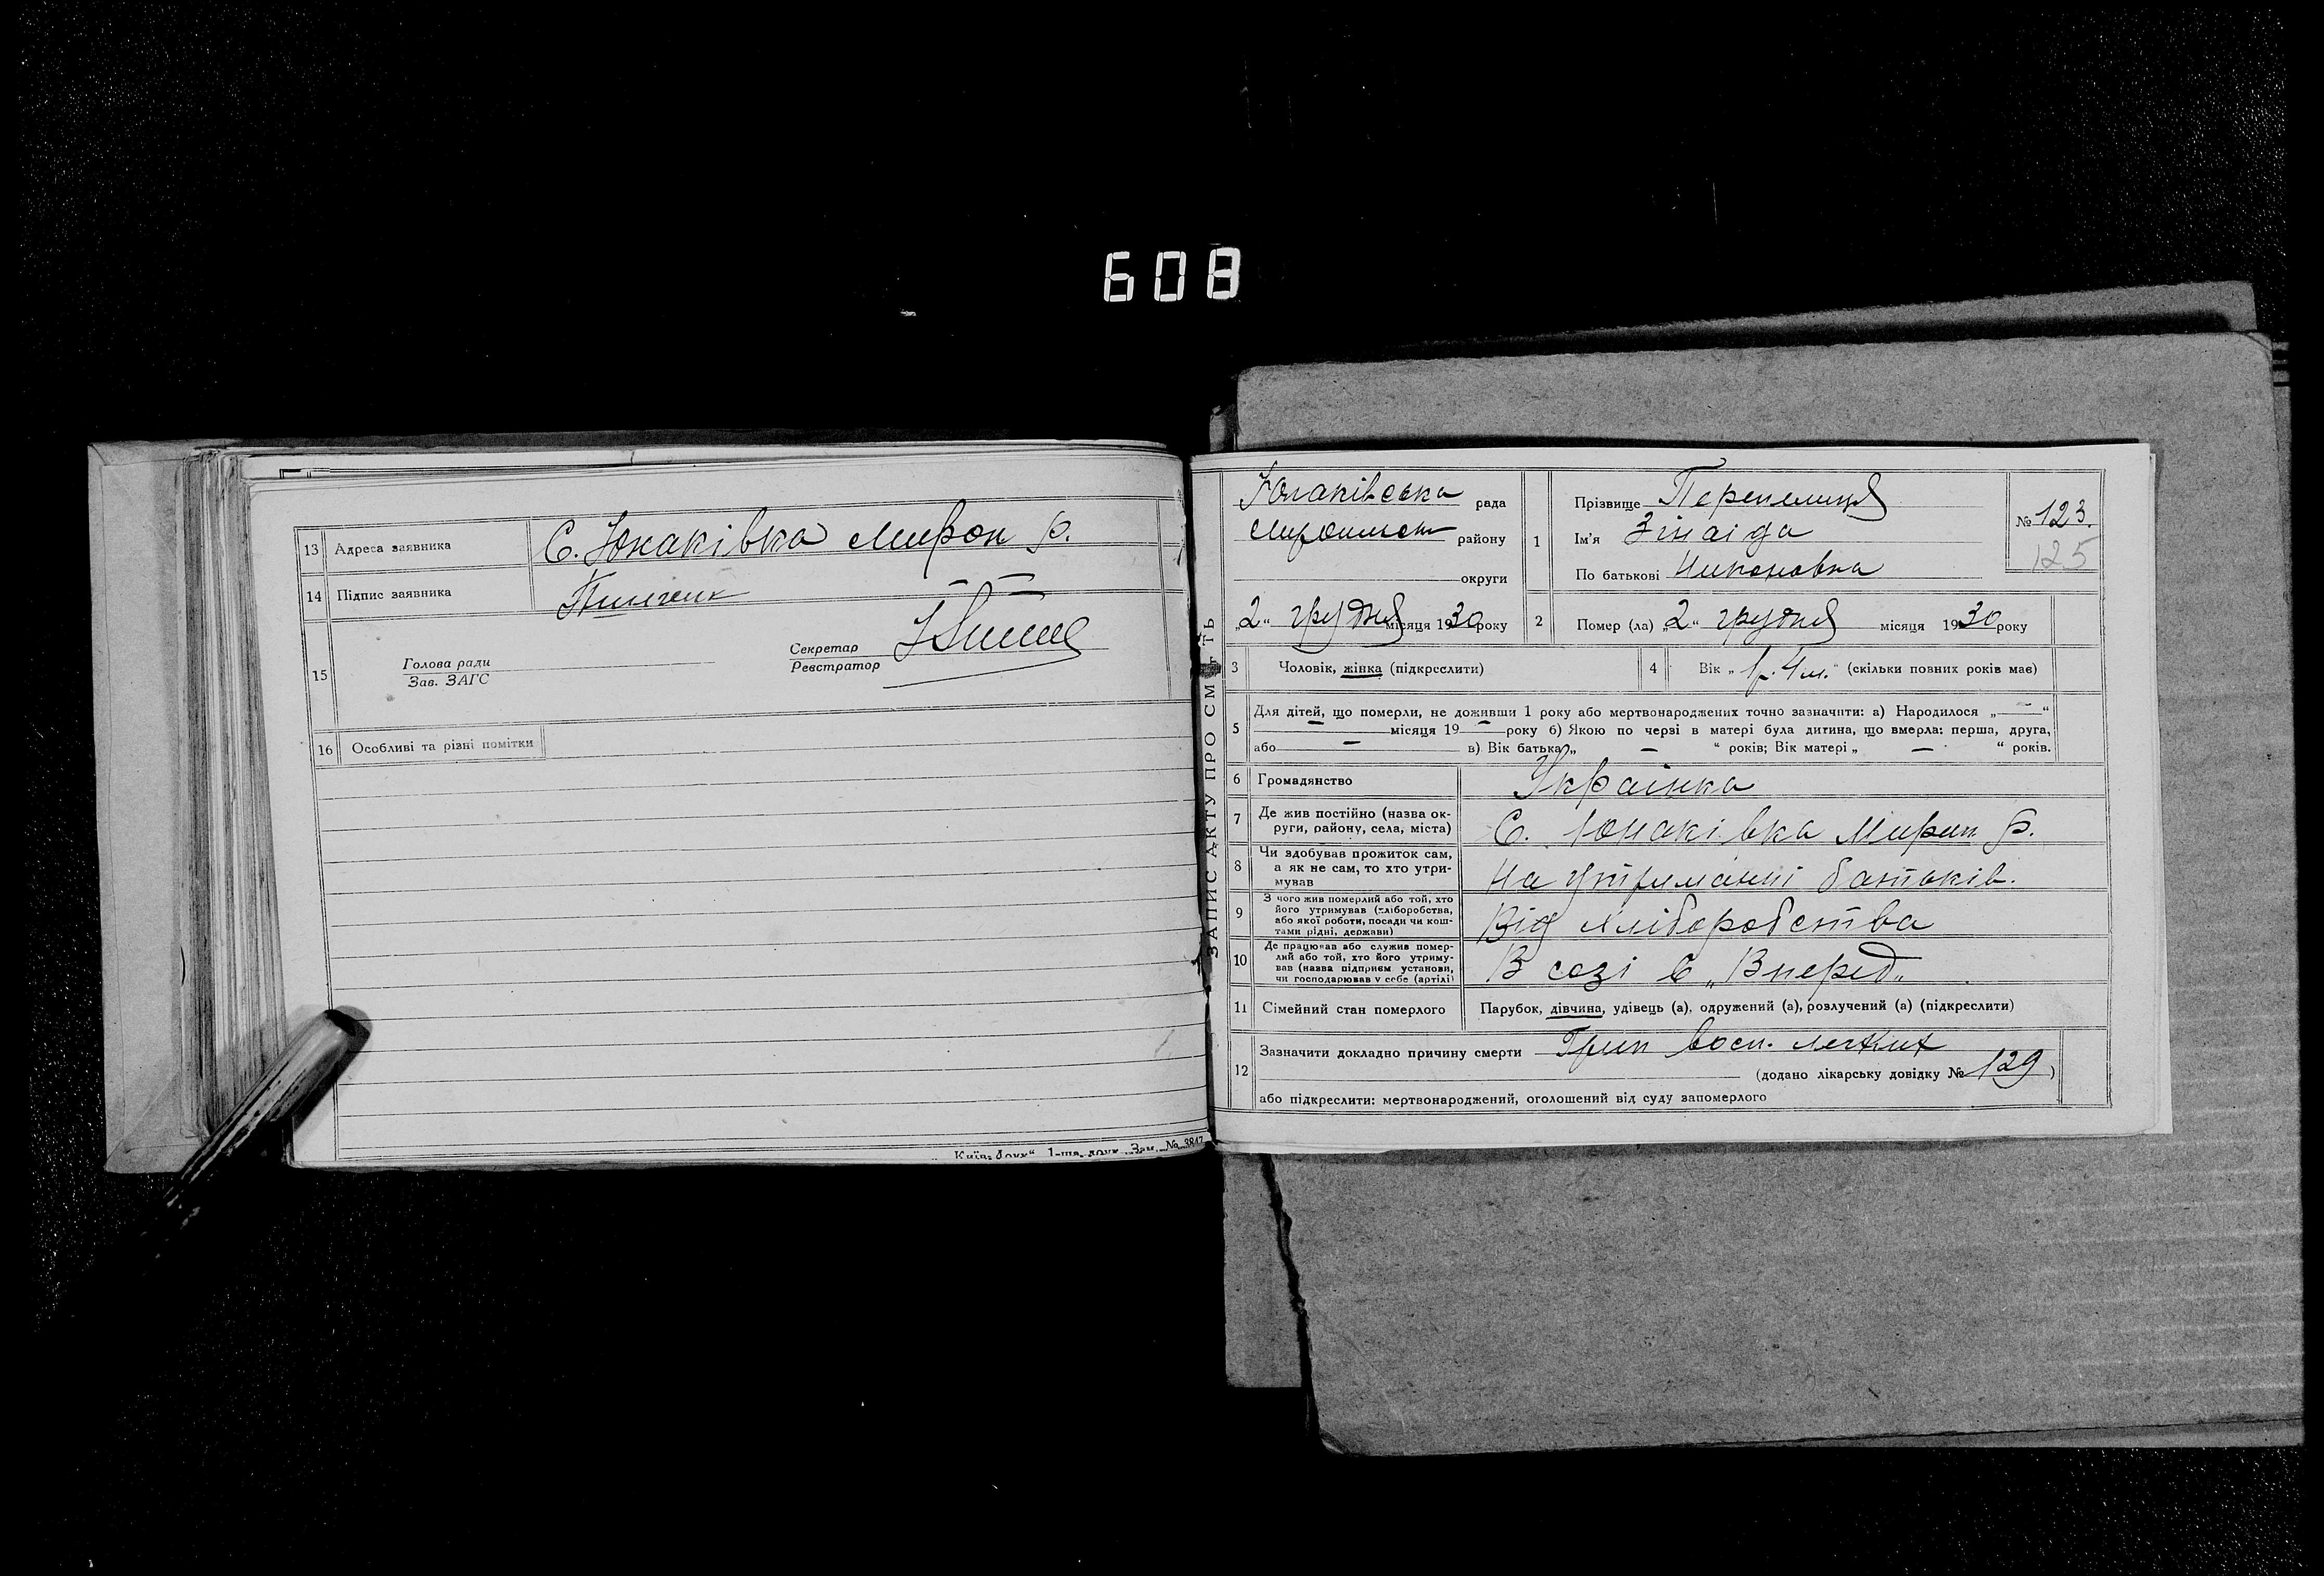 608
13 Адреса заявника С. Юнаківка Мироп р.
14 Підпис заявника
15 Голова ради
Зав. ЗАГС
Секретар
Реєстратор
16 Особливі та різні помітки
„Київ-друк“ 1-ша друк. Зам. № 3847
ЗАПИС АКТУ ПРО СМ ТЬ
Юнаківська рада
району
округи
„2“ грудня місяця 1930 року
1 Прізвище Перепелиця
Ім'я Зінаіда
По батькові Никоновна
№ 123.
125
2 Помер (ла) „2“ грудня місяця 1930 року
3 Чоловік, жінка (підкреслити)
4 Вік „1 р. 4 м.“ (скільки повних років має)
5 Для дітей, що померли, не доживши 1 року або мертвонароджених точно зазначити: а) Народилося „—“
— місяця 19— року б) Якою по черзі в матері була дитина, що вмерла: перша, друга,
або — в) Вік батька „ — “ років; Вік матері „ — “ років.
6 Громадянство Украінка
7 Де жив постійно (назва ок-
руги, району, села, міста) С. Юнаківка Мироп р.
8 Чи здобував прожиток сам,
а як не сам, то хто утри-
мував На утриманні батьків.
9 З чого жив померлий або той, хто
його утримував (хліборобства,
або якої роботи, посади чи кош-
тами рідні, держави) Від хліборобства
10 Де працював або служив помер-
лий або той, хто його утриму-
вав (назва підприєм установи,
чи господарював у себе (артілі) В созі в „Вперед„
11 Сімейний стан померлого Парубок, дівчина, удівець (а), одружений (а), розлучений (а) (підкреслити)
12 Зазначити докладно причину смерти Грип восп. легких
(додано лікарську довідку № 129)
або підкреслити: мертвонароджений, оголошений від суду запомерлого